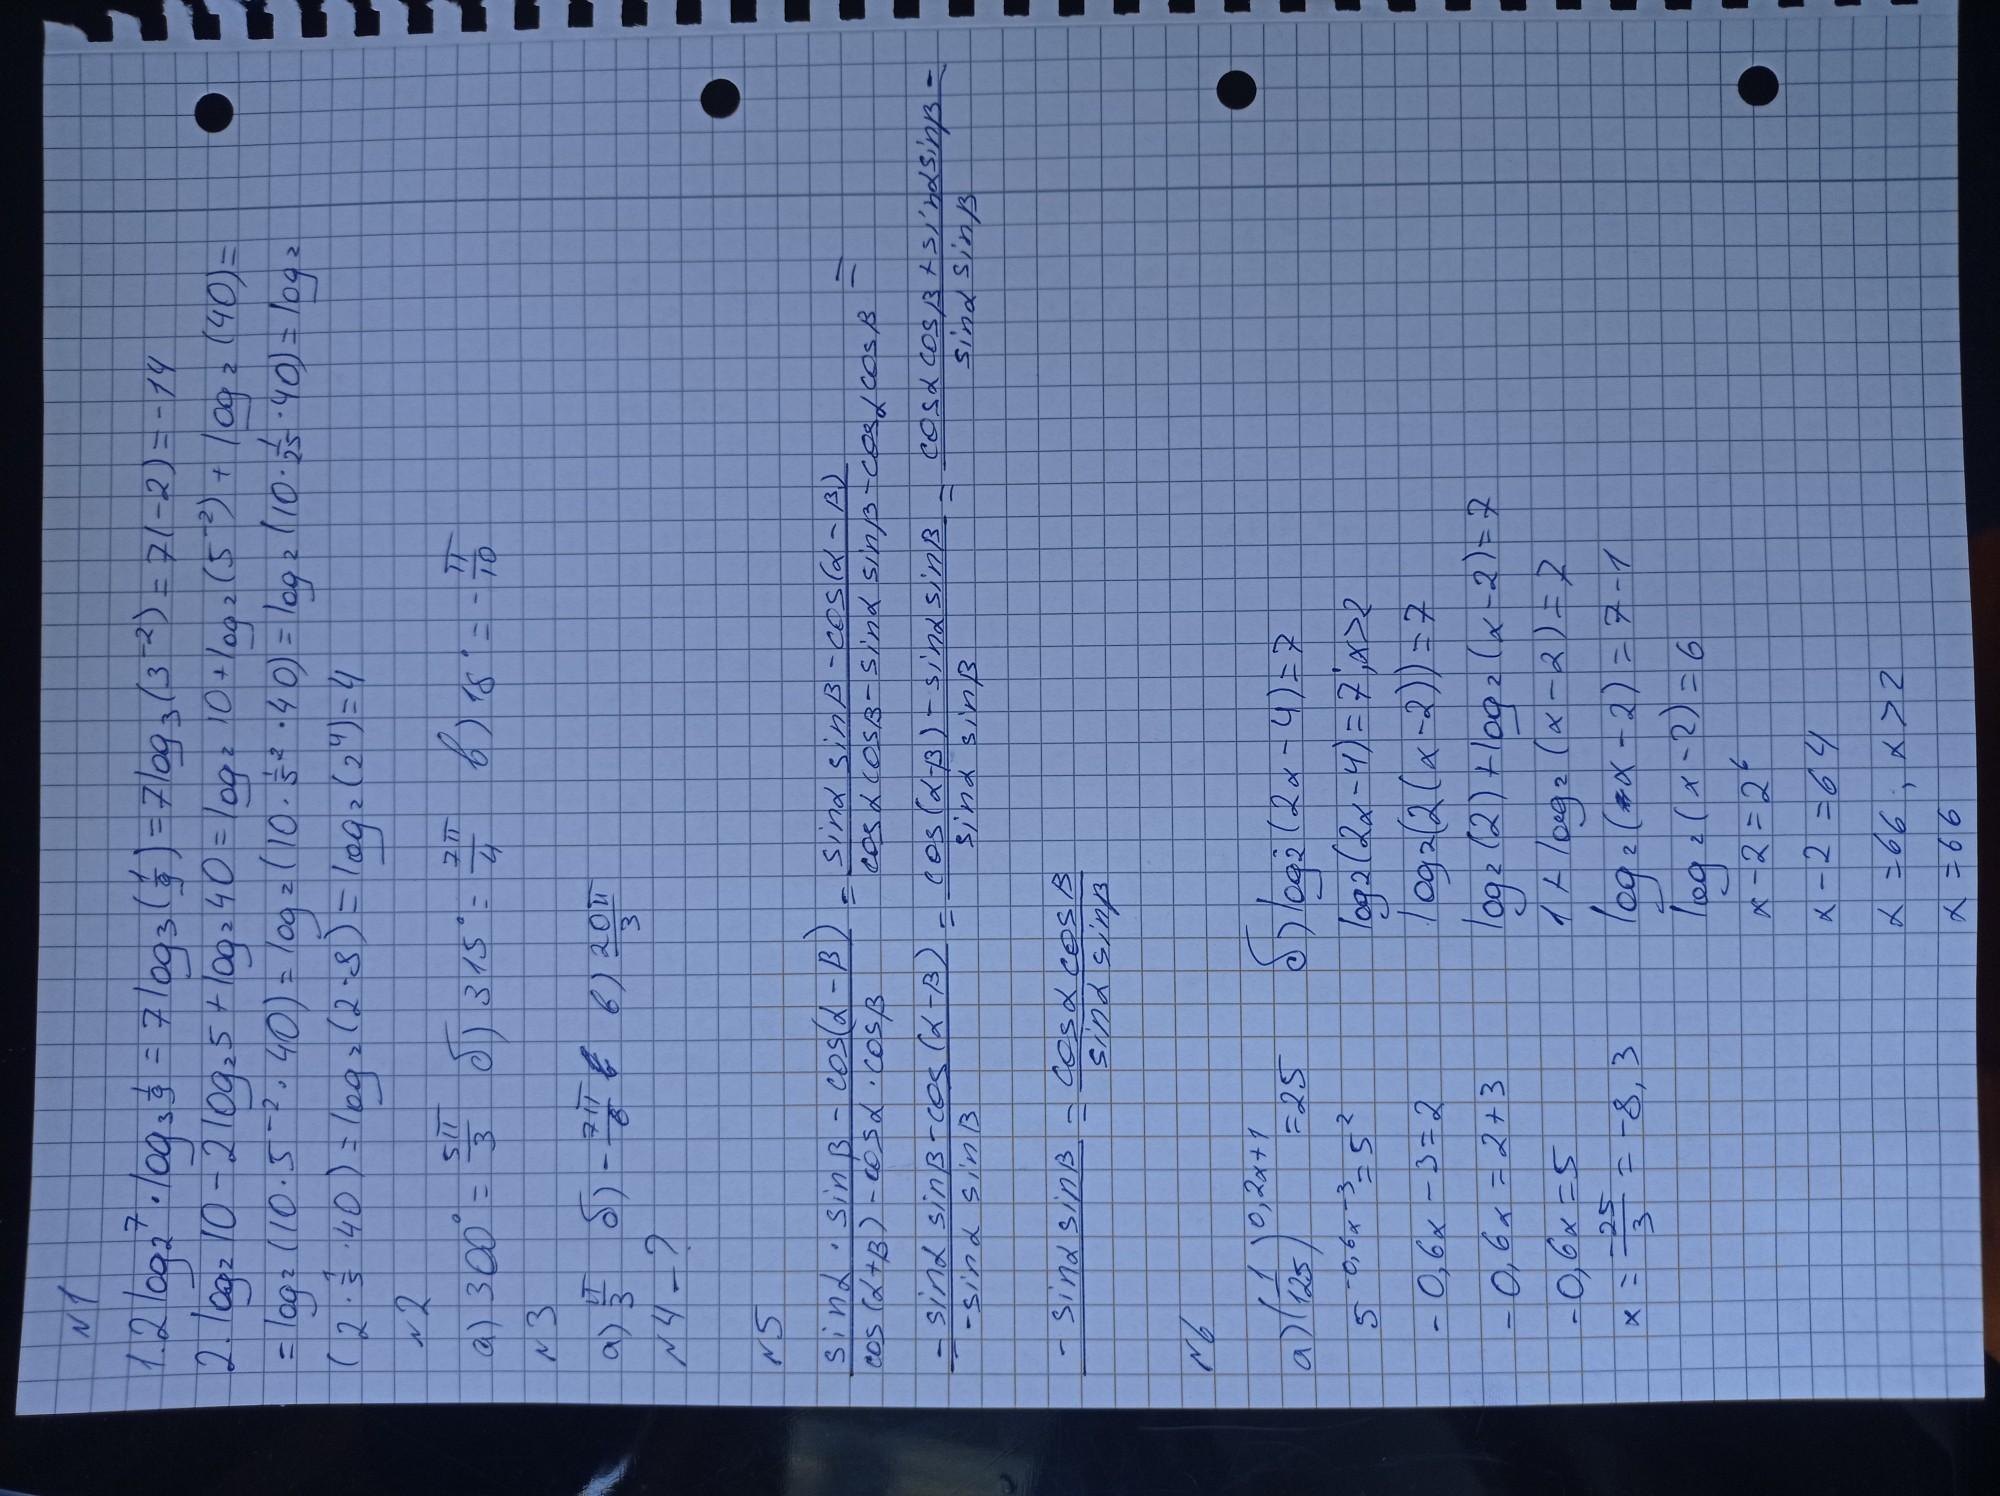 N1
1. 2^log₂7 · log₃ 1/9 = 7 log₃(1/9) = 7 log₃(3⁻²) = 7(-2) = -14
2. log₂10 - 2log₂5 + log₂40 = log₂10 + log₂(5⁻²) + log₂(40) =
= log₂(10 · 5⁻² · 40) = log₂(10 · 1/5² · 40) = log₂(10 · 1/25 · 40) = log₂
(2 · 1/5 · 40) = log₂(2·8) = log₂(2⁴) = 4
N2
а) 300° = 5π/3 б) 315° = 7π/4 в) 18° = -π/10
N3
а) π/3 б) -7π/6 в) 20π/3
N4 - ?
N5
(sinα · sinβ - cos(α-β))/(cos(α+β) - cosα · cosβ) = (sinα sinβ - cos(α-β))/(cosα cosβ - sinα sinβ - cosα cosβ) =
= (-sinα sinβ - cos(α-β))/(-sinα sinβ) = (cos(α-β) - sinα sinβ)/(sinα sinβ) = (cosα cosβ + sinα sinβ -
- sinα sinβ)/(sinα sinβ) = (cosα cosβ)/(sinα sinβ)
N6
а) (1/125)^0,2x+1 = 25
5^-0,6x-3 = 5²
-0,6x - 3 = 2
-0,6x = 2+3
-0,6x = 5
x = -25/3 = -8,3
б) log₂(2x-4) = 7
log₂(2x-4) = 7; x>2
log₂(2(x-2)) = 7
log₂(2) + log₂(x-2) = 7
1 + log₂(x-2) = 7
log₂(x-2) = 7-1
log₂(x-2) = 6
x-2 = 2⁶
x-2 = 64
x = 66; x>2
x = 66